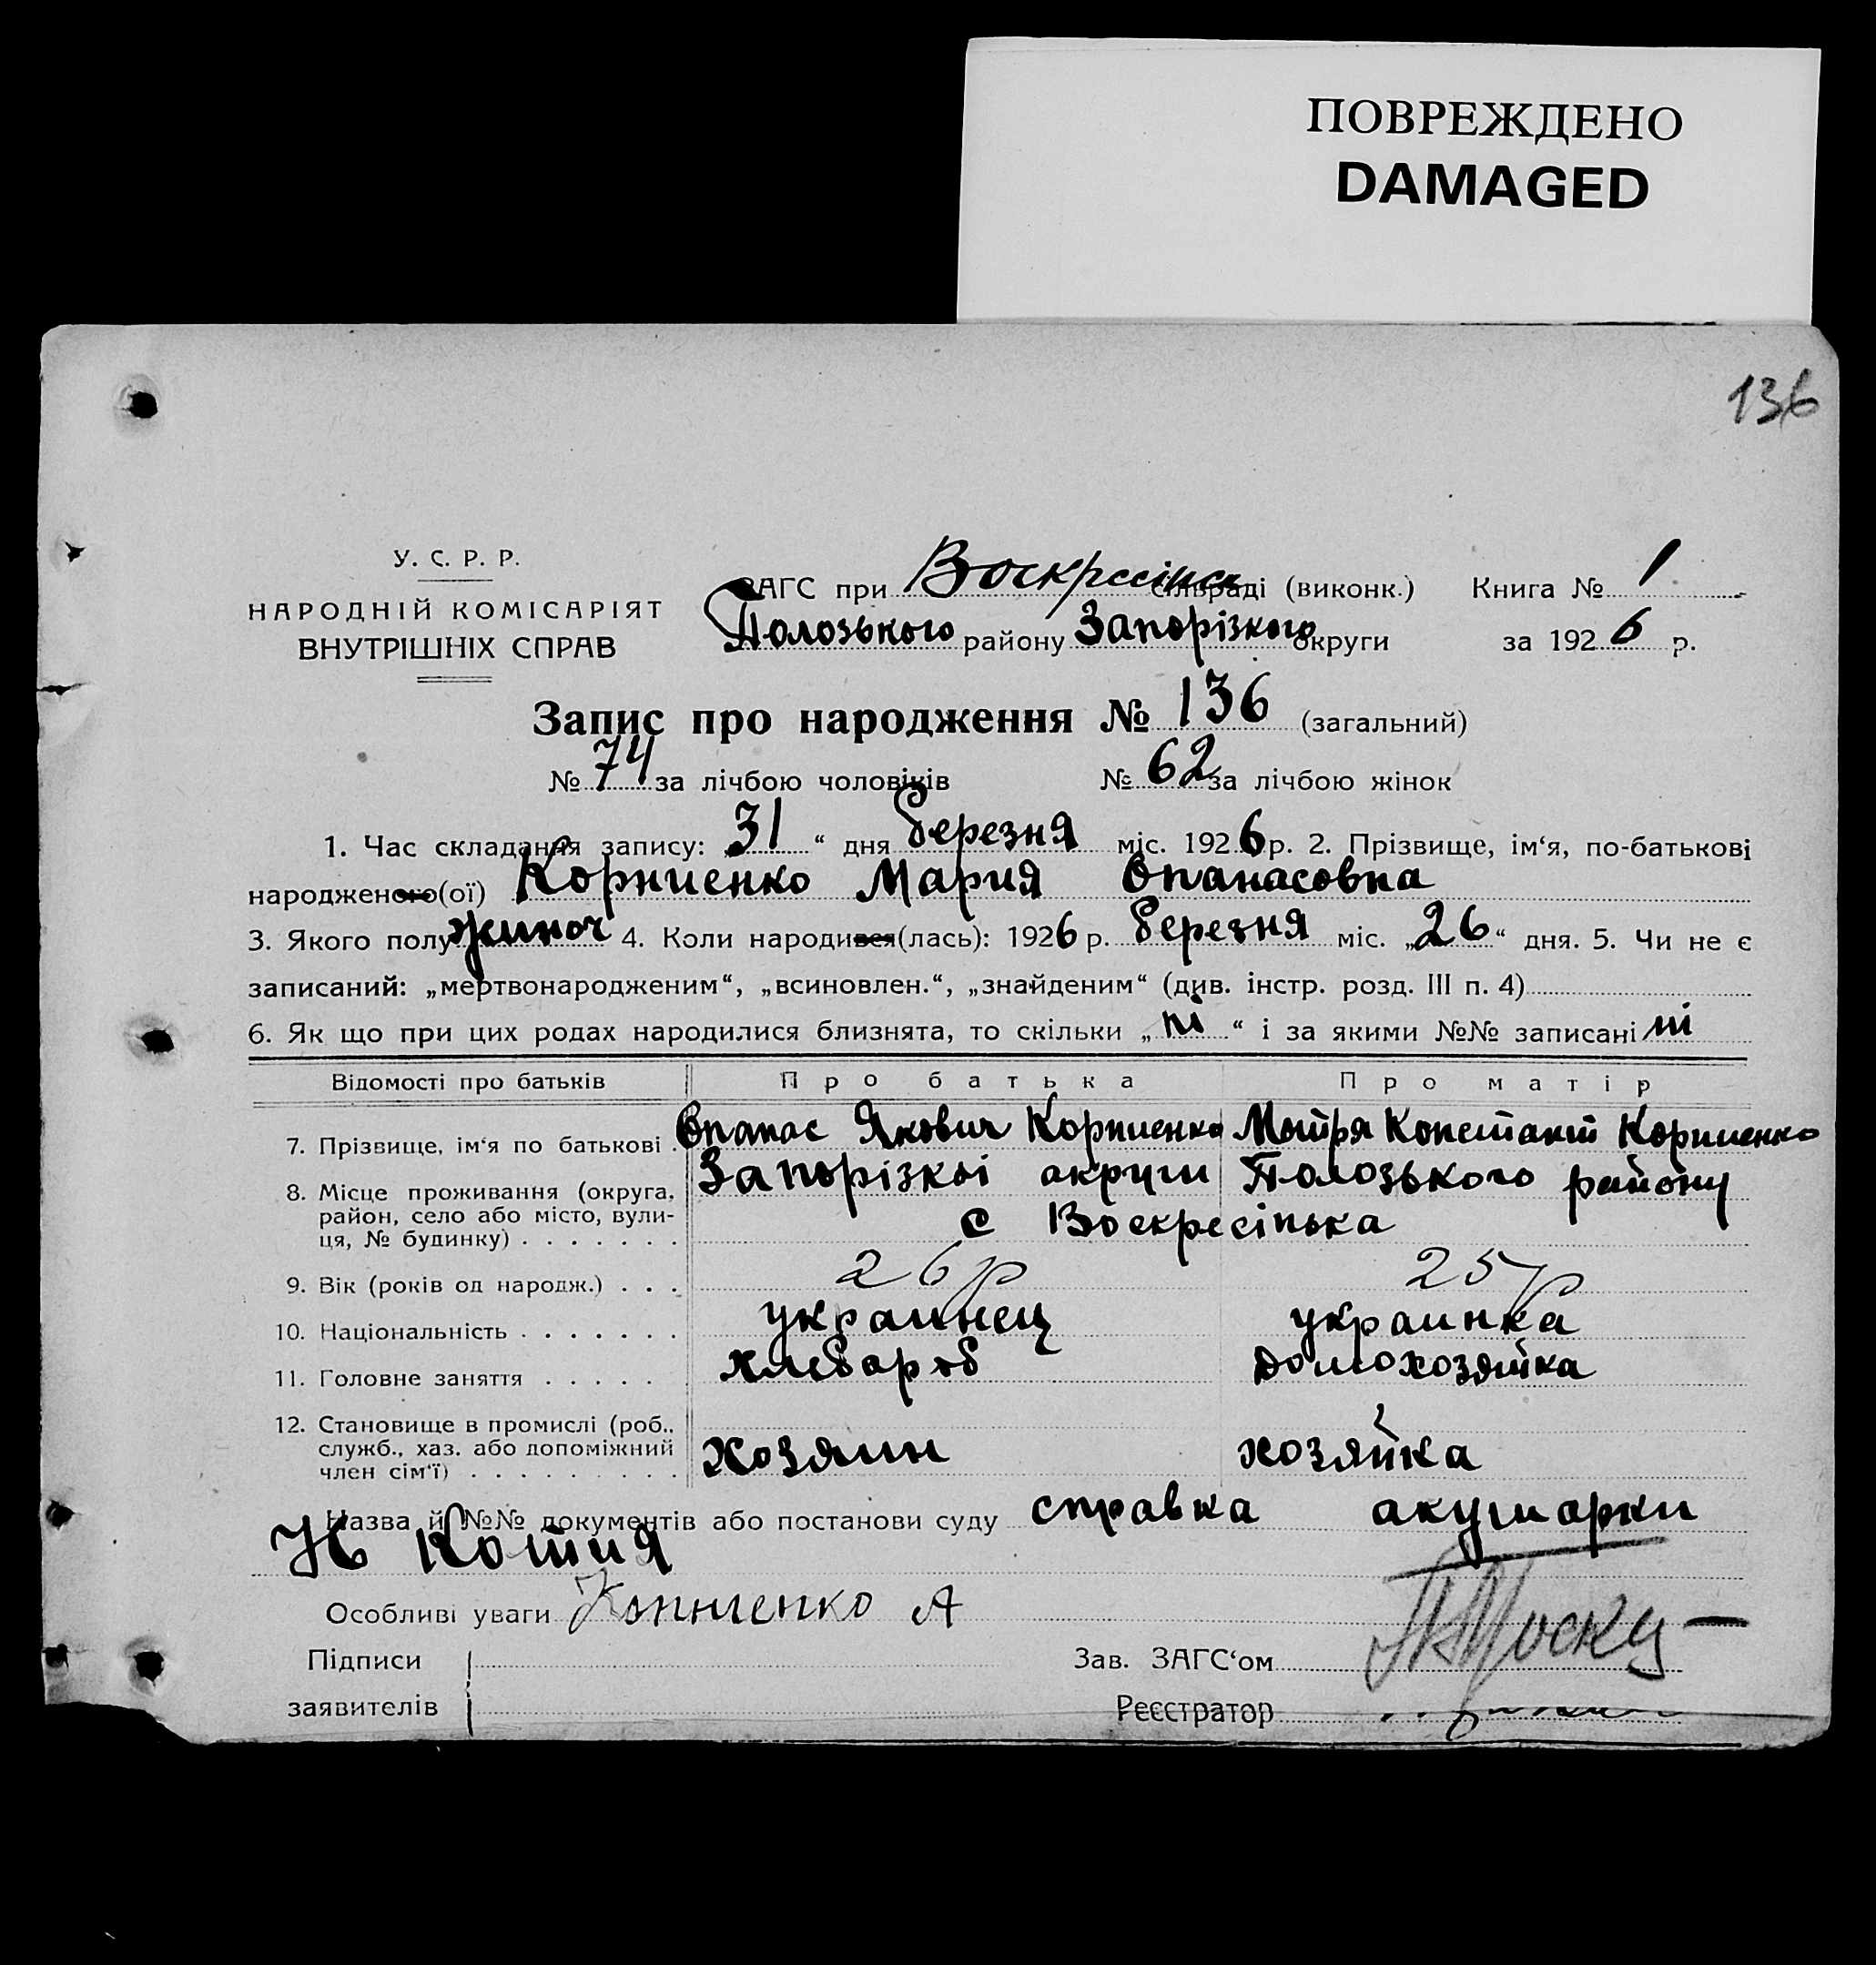 ПОВРЕЖДЕНО
DAMAGED
136
У. С. Р. Р.
НАРОДНІЙ КОМІСАРІЯТ
ВНУТРІШНІХ СПРАВ
ЗАГС при Воскресінск сільраді (виконк.) Книга № 1
Полозького району Запорізкого округи за 1926 р.
Запис про народження № 136 (загальний)
№ 74 за лічбою чоловіків № 62 за лічбою жінок
1. Час складання запису: „31“ дня березня міс. 1926 р. 2. Прізвище, ім‘я, по-батькові
народженого(ої) Корниенко Мария Опанасовна
3. Якого полу жиноч 4. Коли народився(лась): 1926 р. березня міс. „26“ дня. 5. Чи не є
записаний: „мертвонародженим“, „всиновлен.“, „знайденим“ (див. інстр. розд. III п. 4)
6. Як що при цих родах народилися близнята, то скільки „ні“ і за якими №№ записані ні
Відомості про батьків Про батька Про матір
7. Прізвище, ім‘я по батькові . Опанас Якович Корниенко Мотря Констант Корниенко
8. Місце проживання (округа, район, село або місто, вули-ця, № будинку) . . . . . . . Запорізкоі округи Полозького району
с Воскресінька
9. Вік (років од народж.) . . . 26 р 25 р
10. Національність . . . . . . . украинец украинка
11. Головне заняття . . . . . хлебороб домохозяйка
12. Становище в промислі (роб., служб., хаз. або допоміжний член сім‘ї) . . . . . . . . . хозяин хозяйка
Назва й №№ документів або постанови суду справка акушорки
Особливі уваги А
Підписи
заявителів
Зав. ЗАГС‘ом
Реєстратор